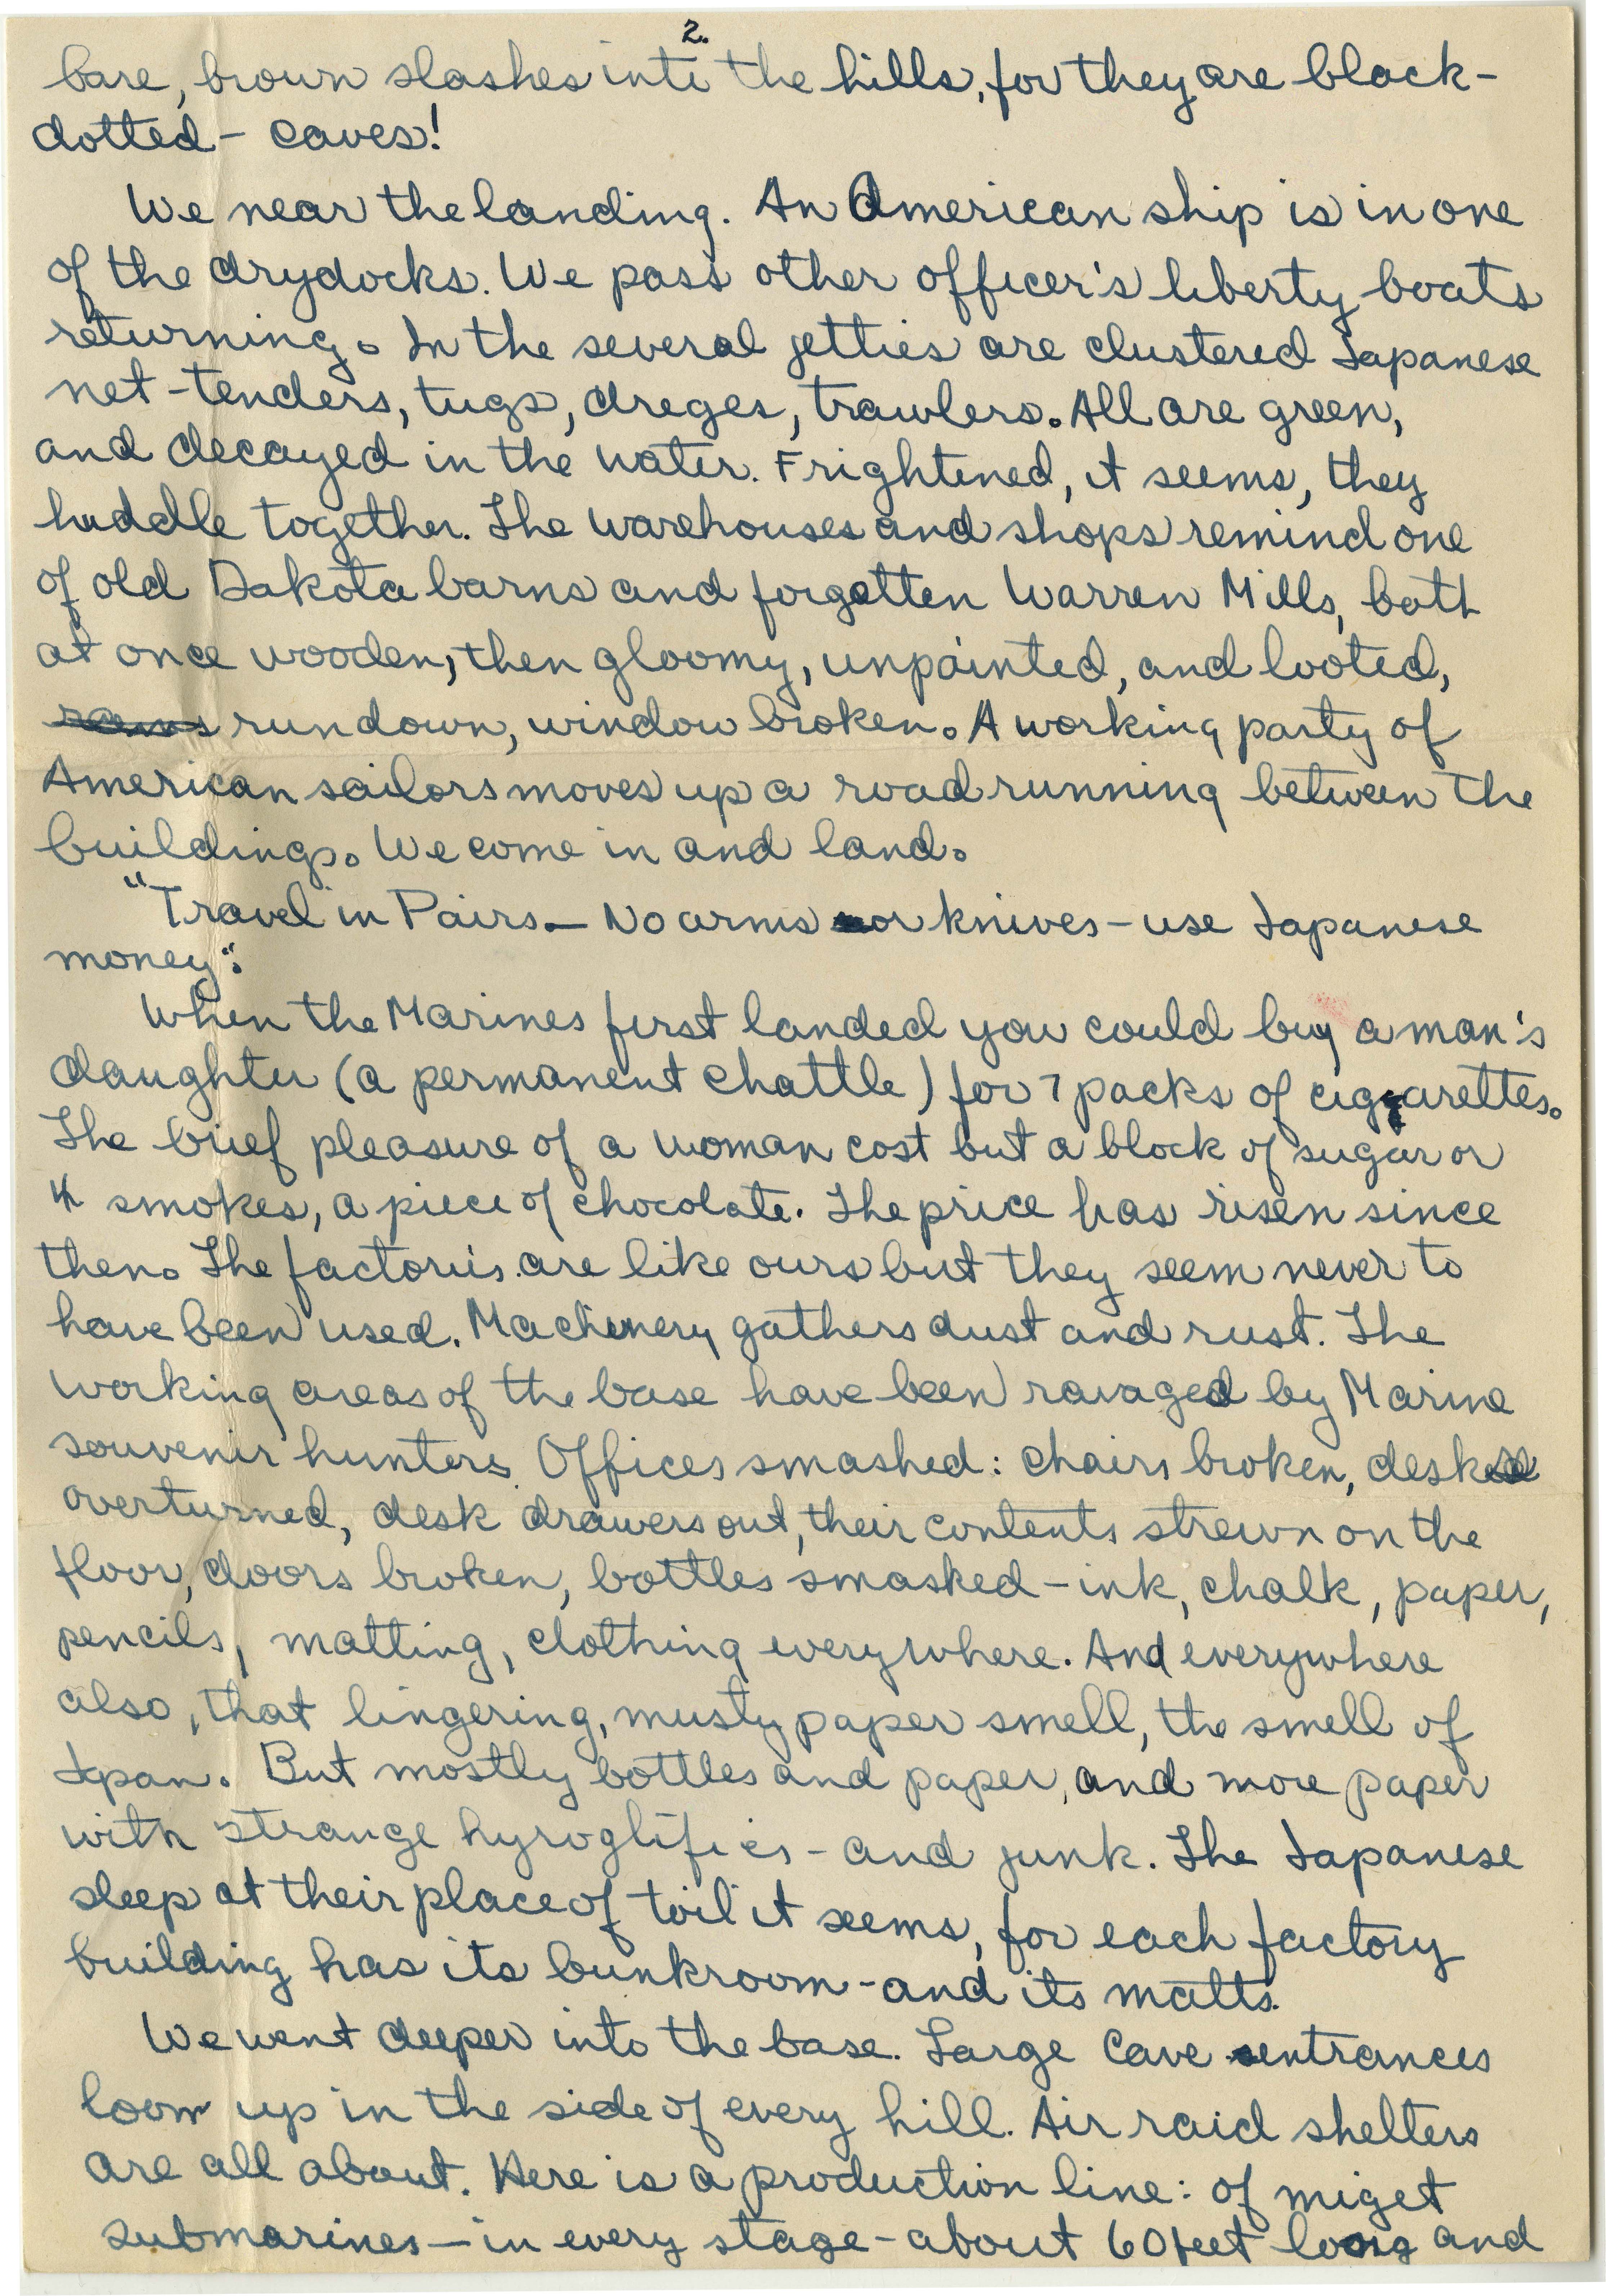 2.
bare, brown slashes into the hills, for they are black-
dotted - caves!
We near the landing. An American ship is in one
of the drydocks. We pass other officer's liberty boats
returning. In the several jetties are clustered Japanese
net-tenders, tugs, dreges, trawlers. All are green,
and decayed in the water. Frightened, it seems, they
huddle together. The warehouses and shops remind one
of old Dakota barns and forgotten Warren Mills, both
at once wooden, then gloomy, unpainted, and looted,
rundown, window broken. A working party of
American sailors moves up a road running between the
buildings. We come in and land.
"Travel in Pairs. — No arms or knives - use Japanese
money".
When the Marines first landed you could buy a man's
daughter (a permanent chattle) for 7 packs of cigarettes.
The brief pleasure of a woman cost but a block of sugar or
4 smokes, a piece of chocolate. The price has risen since
then. The factories are like ours but they seem never to
have been used. Machinery gathers dust and rust. The
working areas of the base have been ravaged by Marine
souvenir hunters. Offices smashed: chairs broken, desks
overturned, desk drawers out, their contents strewn on the
floor, doors broken, bottles smasked - ink, chalk, paper,
pencils, matting, clothing everywhere. And everywhere
also, that lingering, musty paper smell, the smell of
Japan. But mostly bottles and paper, and more paper
with strange hyroglifics - and junk. The Japanese
sleep at their place of toil it seems, for each factory
building has its bunkroom - and its matts.
We went deeper into the base. Large cave entrances
loom up in the side of every hill. Air raid shelters
are all about. Here is a production line: of miget
submarines — in every stage - about 60 feet long and